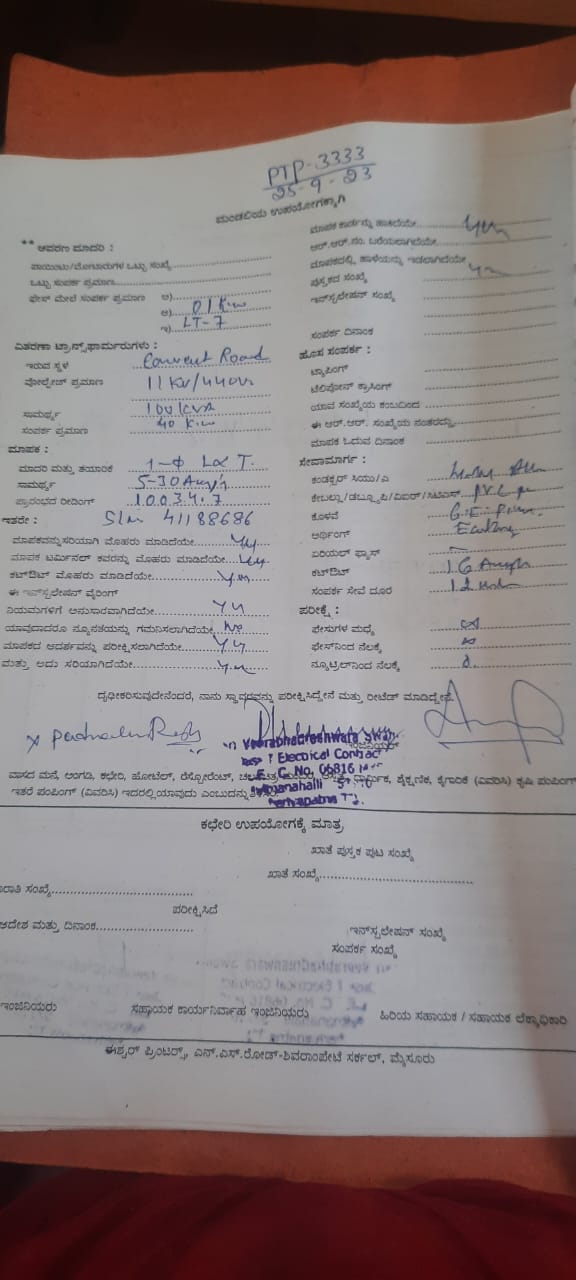 PTP-3333
25-9-23
ಮಂಡಲಿಯ ಉಪಯೋಗಕ್ಕಾಗಿ
** ಆವರಣ ಮಾದರಿ :
ಪಾಯಿಂಟು/ಮೋಟಾರುಗಳ ಒಟ್ಟು ಸಂಖ್ಯೆ
ಒಟ್ಟು ಸಂಪರ್ಕ ಪ್ರಮಾಣ
ಫೇಸ್ ಮೇಲೆ ಸಂಪರ್ಕ ಪ್ರಮಾಣ ಅ)
ಆ) 01 Kw
ಇ) LT-7
ವಿತರಣಾ ಟ್ರಾನ್ಸ್‌ಫಾರ್ಮರುಗಳು :
ಇರುವ ಸ್ಥಳ Convent Road
ವೋಲ್ಟೇಜ್ ಪ್ರಮಾಣ 11 KV/440V
ಸಾಮರ್ಥ್ಯ 100 KVA
ಸಂಪರ್ಕ ಪ್ರಮಾಣ 40 Kw
ಮಾಪಕ :
ಮಾದರಿ ಮತ್ತು ತಯಾರಿಕೆ 1-Φ L&T.
ಸಾಮರ್ಥ್ಯ 5-30 Amp
ಪ್ರಾರಂಭದ ರೀಡಿಂಗ್ 10034.7
ಇತರೇ : Sl no 41188686
ಮಾಪಕವನ್ನು ಸರಿಯಾಗಿ ಮೊಹರು ಮಾಡಿದೆಯೇ
ಮಾಪಕ ಟರ್ಮಿನಲ್ ಕವರನ್ನು ಮೊಹರು ಮಾಡಿದೆಯೇ
ಕಟ್‌ಔಟ್ ಮೊಹರು ಮಾಡಿದೆಯೇ
ಈ ಇನ್‌ಸ್ಟಲೇಷನ್ ವೈರಿಂಗ್
ನಿಯಮಗಳಿಗೆ ಅನುಸಾರವಾಗಿದೆಯೇ
ಯಾವುದಾದರೂ ನ್ಯೂನತೆಯನ್ನು ಗಮನಿಸಲಾಗಿದೆಯೇ No
ಮಾಪಕದ ಆದರ್ಶವನ್ನು ಪರೀಕ್ಷಿಸಲಾಗಿದೆಯೇ
ಮತ್ತು ಅದು ಸರಿಯಾಗಿದೆಯೇ
ಮಾಪಕ ಕಾರ್ಡನ್ನು ಹಾಕಿದೆಯೇ
ಆರ್.ಆರ್.ನಂ. ಬರೆಯಲಾಗಿದೆಯೇ
ಮಾಪಕದಲ್ಲಿ ಹಾಳೆಯನ್ನು ಇಡಲಾಗಿದೆಯೇ
ಪುಸ್ತಕದ ಸಂಖ್ಯೆ
ಇನ್‌ಸ್ಟಲೇಷನ್ ಸಂಖ್ಯೆ
ಸಂಪರ್ಕ ದಿನಾಂಕ
ಹೊಸ ಸಂಪರ್ಕ :
ಟ್ಯಾಪಿಂಗ್
ಟೆಲಿಫೋನ್ ಕ್ರಾಸಿಂಗ್
ಯಾವ ಸಂಖ್ಯೆಯ ಕಂಬದಿಂದ
ಈ ಆರ್.ಆರ್. ಸಂಖ್ಯೆಯ ನಂತರದ್ದು
ಮಾಪಕ ಓದುವ ದಿನಾಂಕ
ಸೇವಾಮಾರ್ಗ :
ಕಂಡಕ್ಟರ್ ಸಿಯು/ಎ
ಕೇಬಲ್ಲು/ಡಬ್ಲ್ಯೂಪಿ/ವಿಐಆರ್/ಸಿಟಿಎಸ್ PVC
ಕೊಳವೆ G.I. Pipe
ಅರ್ಥಿಂಗ್ Earthing
ಏರಿಯಲ್ ಫ್ಯೂಸ್
ಕಟ್‌ಔಟ್ 16 Amp
ಸಂಪರ್ಕ ಸೇವೆ ದೂರ
ಪರೀಕ್ಷೆ :
ಫೇಸುಗಳ ಮಧ್ಯೆ
ಫೇಸ್‌ನಿಂದ ನೆಲಕ್ಕೆ
ನ್ಯೂಟ್ರಲ್‌ನಿಂದ ನೆಲಕ್ಕೆ
ದೃಢೀಕರಿಸುವುದೇನೆಂದರೆ, ನಾನು ಸ್ಥಾವರವನ್ನು ಪರೀಕ್ಷಿಸಿದ್ದೇನೆ ಮತ್ತು ರೀಟೆಡ್ ಮಾಡಿದ್ದೇನೆ.
Veerabhadreshwara
Electrical Contract
C. No. 06816
ವಾಸದ ಮನೆ, ಅಂಗಡಿ, ಕಛೇರಿ, ಹೋಟೆಲ್, ರೆಸ್ಟೋರೆಂಟ್, ಧಾರ್ಮಿಕ, ಶೈಕ್ಷಣಿಕ, ಕೈಗಾರಿಕೆ (ವಿವರಿಸಿ) ಕೃಷಿ ಪಂಪಿಂಗ್
ಇತರೆ ಪಂಪಿಂಗ್ (ವಿವರಿಸಿ) ಇದರಲ್ಲಿ ಯಾವುದು ಎಂಬುದನ್ನು
ಕಛೇರಿ ಉಪಯೋಗಕ್ಕೆ ಮಾತ್ರ
ಖಾತೆ ಪುಸ್ತಕ ಪುಟ ಸಂಖ್ಯೆ
ಖಾತೆ ಸಂಖ್ಯೆ
ಪರೀಕ್ಷಿಸಿದೆ
ಆದೇಶ ಮತ್ತು ದಿನಾಂಕ
ಇನ್‌ಸ್ಟಲೇಷನ್ ಸಂಖ್ಯೆ
ಸಂಪರ್ಕ ಸಂಖ್ಯೆ
ಇಂಜಿನಿಯರು ಸಹಾಯಕ ಕಾರ್ಯನಿರ್ವಾಹ ಇಂಜಿನಿಯರು ಹಿರಿಯ ಸಹಾಯಕ / ಸಹಾಯಕ ಲೆಕ್ಕಾಧಿಕಾರಿ
ಈಶ್ವರ್ ಪ್ರಿಂಟರ್ಸ್, ಎನ್.ಎಸ್.ರೋಡ್-ಶಿವರಾಂಪೇಟೆ ಸರ್ಕಲ್, ಮೈಸೂರು